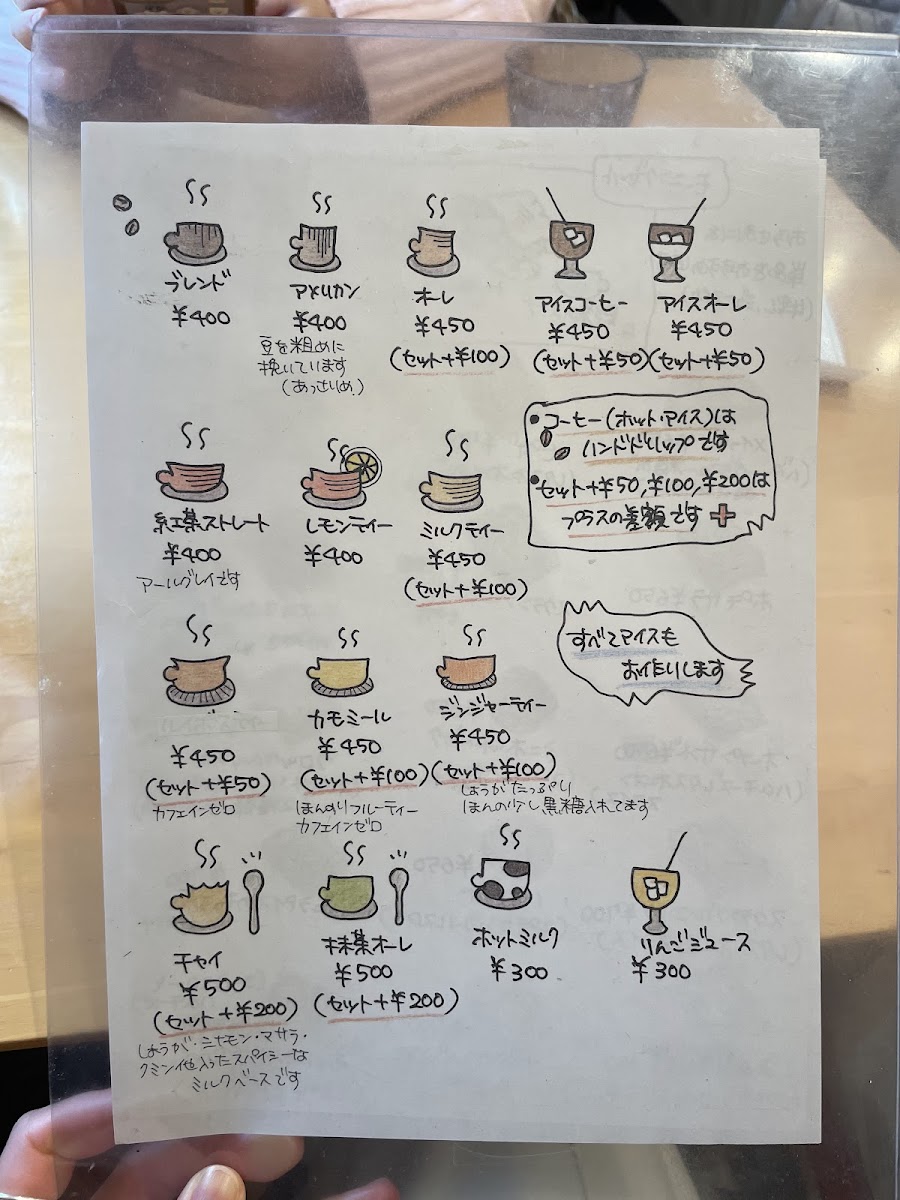 ブレンド
¥400
アメリカン
¥400
豆を粗めに
挽いています
(あっさりめ)
オーレ
¥450
(セット+¥100)
アイスコーヒー
¥450
(セット+¥50)
アイスオーレ
¥450
(セット+¥50)
・コーヒー(ホット・アイス)は
ハンドドリップです
・セット+¥50,¥100,¥200は
プラスの差額です
紅茶ストレート
¥400
アールグレイです
レモンティー
¥400
ミルクティー
¥450
(セット+¥100)
すべてアイスも
お作りします
¥450
(セット+¥50)
カフェインゼロ
カモミール
¥450
(セット+¥100)
ほんのりフルーティー
カフェインゼロ
ジンジャーティー
¥450
(セット+¥100)
しょうがたっぷり
ほんの少し黒糖入れてます
チャイ
¥500
(セット+¥200)
しょうが・シナモン・マサラ・
クミン他入ったスパイシーな
ミルクベースです
抹茶オーレ
¥500
(セット+¥200)
ホットミルク
¥300
りんごジュース
¥300